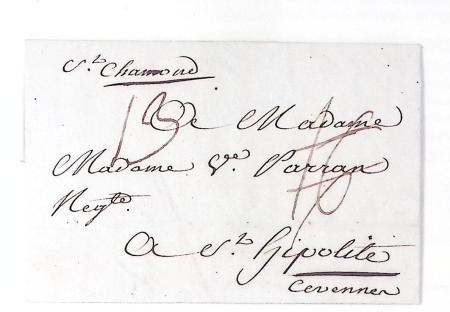 S.t Chamond
A Madame
Madame V.e Parran
Neg.te
A S.t Hipolite
Cevennes